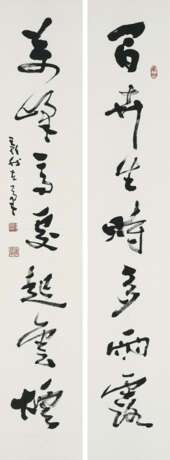 百卉生時多雨露
萬峰高處起雲煙